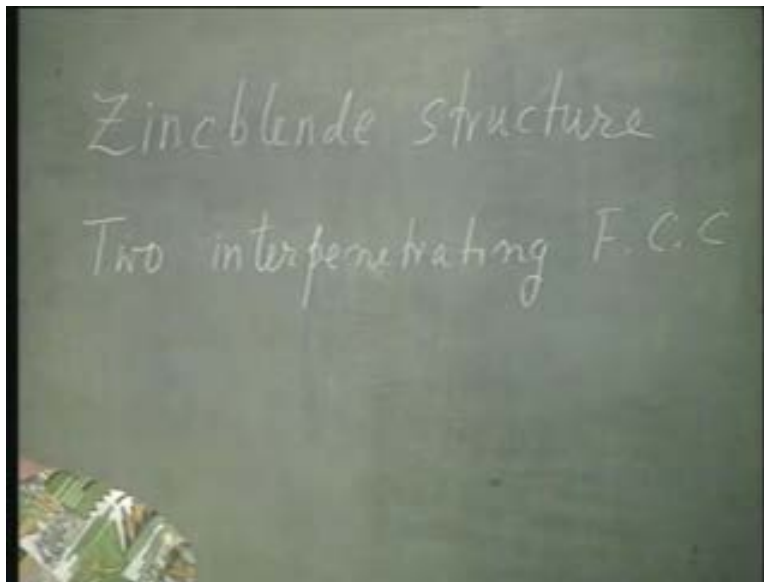 Zincblende structure
Two interpenetrating F.C.C